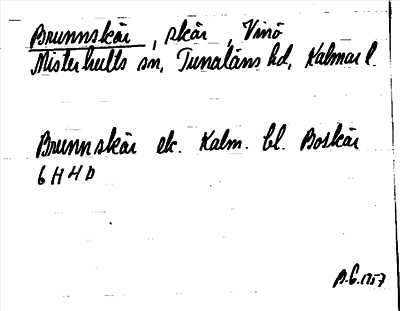 Brunnskär, skär, Vinö
Misterhults sn, Tunaläns hd, Kalmar l.
Brunnskär ek. Kalm. bl. Boskär
6 H 4 D